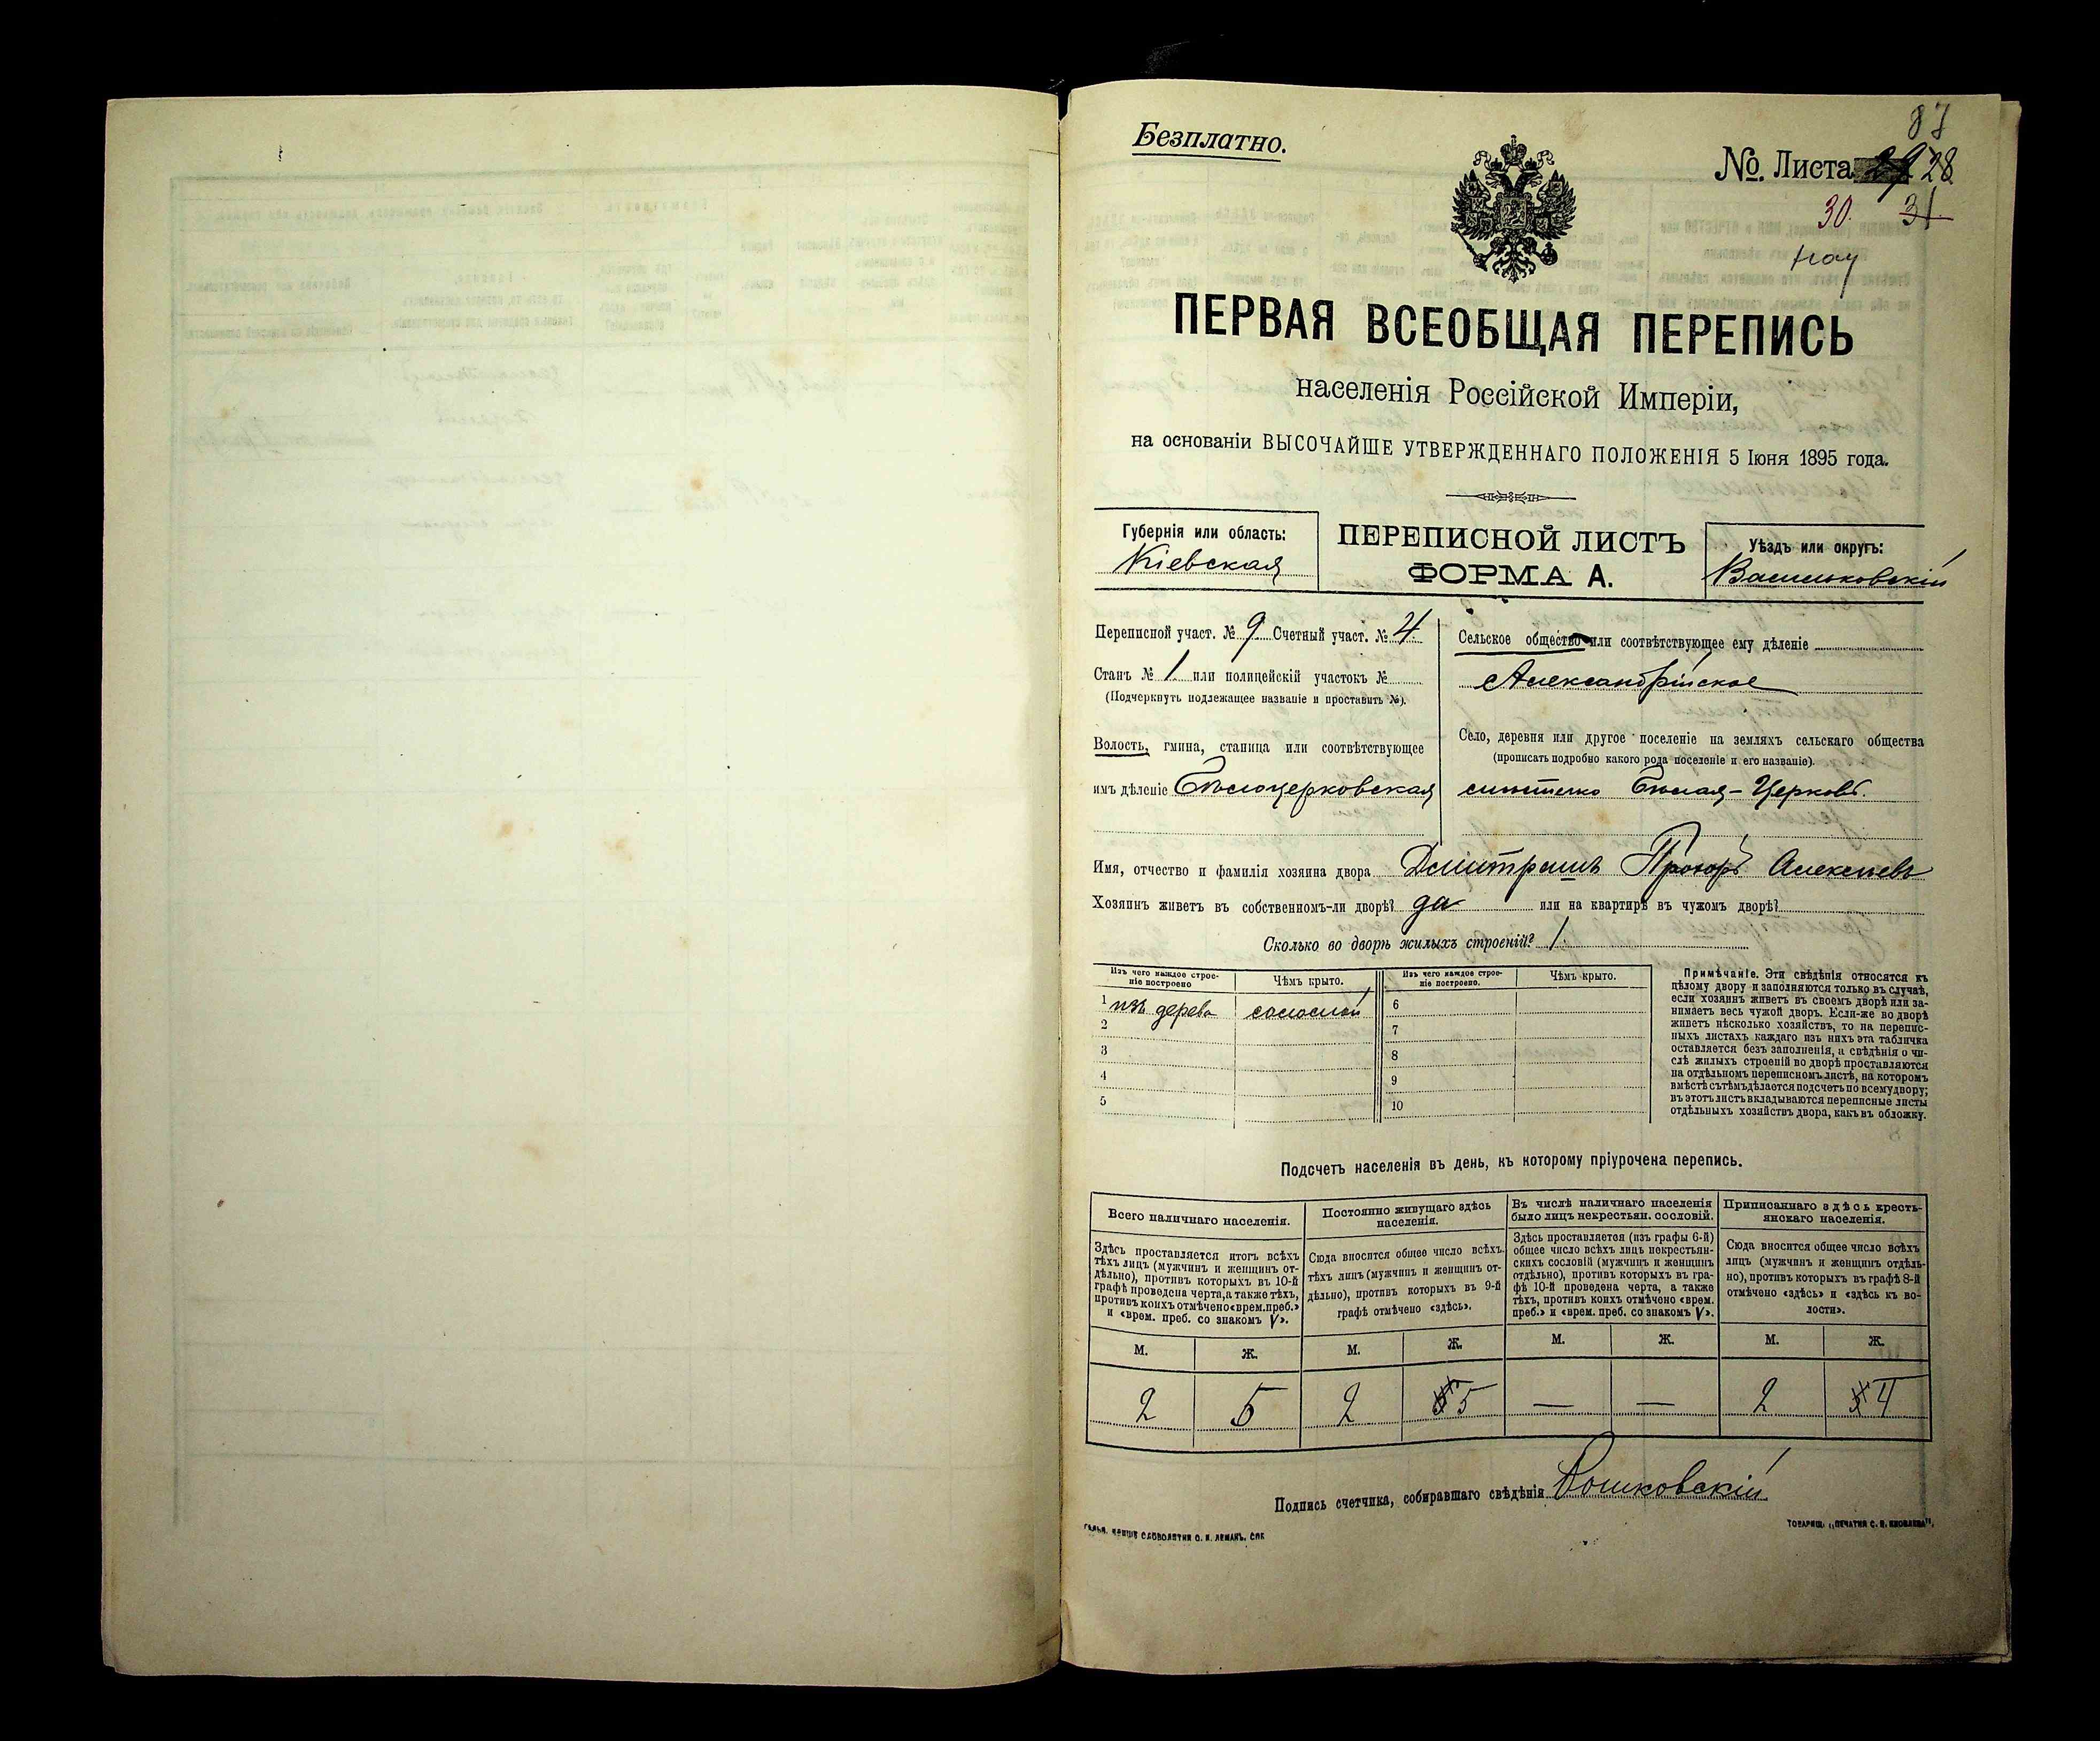 87
Безплатно.
№. Листа 28
30. 31
ПЕРВАЯ ВСЕОБЩАЯ ПЕРЕПИСЬ
населенія Россійской Имперіи,
на основаніи ВЫСОЧАЙШЕ УТВЕРЖДЕННАГО ПОЛОЖЕНІЯ 5 Іюня 1895 года.
Губернія или область:
Кіевская
ПЕРЕПИСНОЙ ЛИСТЪ
ФОРМА А.
Уѣздъ или округъ:
Васильковскій
Переписной участ. № 9 Счетный участ. № 4
Станъ № 1 или полицейскій участокъ №
(Подчеркнуть подлежащее названіе и проставить №).
Волость, гмина, станица или соотвѣтствующее
имъ дѣленіе Бѣлоцерковская
Сельское общество или соотвѣтствующее ему дѣленіе
Александрійское
Село, деревня или другое поселеніе на земляхъ сельскаго общества
(прописать подробно какого рода поселеніе и его названіе).
мѣстечко Бѣлая-Церковь.
Имя, отчество и фамилія хозяина двора Дмитрашъ Прохоръ Алексѣевъ
Хозяинъ живетъ въ собственномъ-ли дворѣ? да или на квартирѣ въ чужомъ дворѣ?
Сколько во дворѣ жилыхъ строеній? 1.
Изъ чего каждое строе-
ніе построено
Чѣмъ крыто.
Изъ чего каждое строе-
ніе построено.
Чѣмъ крыто.
1 изъ дерева соломой 6
2 7
3 8
4 9
5 10
Примѣчаніе. Эти свѣдѣнія относятся къ
цѣлому двору и заполняются только въ случаѣ,
если хозяинъ живетъ въ своемъ дворѣ или за-
нимаетъ весь чужой дворъ. Если-же во дворѣ
живетъ нѣсколько хозяйствъ, то на перепис-
ныхъ листахъ каждаго изъ нихъ эта табличка
оставляется безъ заполненія, а свѣдѣнія о чи-
слѣ жилыхъ строеній во дворѣ проставляются
на отдѣльномъ переписномъ листѣ, на которомъ
вмѣстѣ съ тѣмъ дѣлается подсчетъ по всему двору;
въ этотъ листъ вкладываются переписные листы
отдѣльныхъ хозяйствъ двора, какъ въ обложку.
Подсчетъ населенія въ день, къ которому пріурочена перепись.
Всего наличнаго населенія.
Здѣсь проставляется итогъ всѣхъ
тѣхъ лицъ (мужчинъ и женщинъ от-
дѣльно), противъ которыхъ въ 10-й
графѣ проведена черта, а также тѣхъ,
противъ коихъ отмѣчено «врем. преб.»
и «врем. преб. со знакомъ V».
Постоянно живущаго здѣсь
населенія.
Сюда вносится общее число всѣхъ
тѣхъ лицъ (мужчинъ и женщинъ от-
дѣльно), противъ которыхъ въ 9-й
графѣ отмѣчено «здѣсь».
Въ числѣ наличнаго населенія
было лицъ некрестьян. сословій.
Здѣсь проставляется (изъ графы 6-й)
общее число всѣхъ лицъ некрестьян-
скихъ сословій (мужчинъ и женщинъ
отдѣльно), противъ которыхъ въ гра-
фѣ 10-й проведена черта, а также
тѣхъ, противъ коихъ отмѣчено «врем.
преб.» и «врем. преб. со знакомъ V».
Приписаннаго здѣсь кресть-
янскаго населенія.
Сюда вносится общее число всѣхъ
лицъ (мужчинъ и женщинъ отдѣль-
но), противъ которыхъ въ графѣ 8-й
отмѣчено «здѣсь» и «здѣсь къ во-
лости».
М. Ж. М. Ж. М. Ж. М. Ж.
2 5 2 5 — — 2 4
Подпись счетчика, собиравшаго свѣдѣнія
СЛОВОЛИТНИ О. И. ЛЕМАНЪ. СПБ
ТОВАРИЩ. „ПЕЧАТНЯ С. П. ЯКОВЛЕВА".